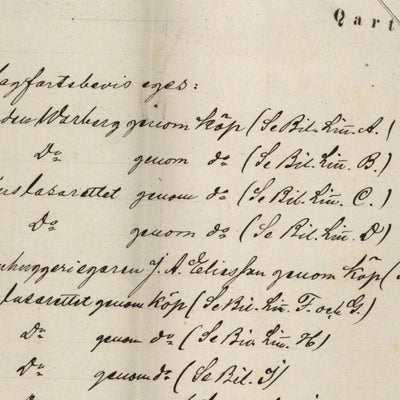 Qart
lagfartsbevis eges:
den Warberg genom köp (Se Bil. Litt. A.)
Do genom do (Se Bil. Litt. B.)
lazarettet genom do (Se Bil. Litt. C.)
Do genom do (Se Bil. Litt. D)
huggeriegaren J. A. Eliasson genom köp (
lazarettet genom köp (Se Bil. Litt. F. och G.)
Do genom do (Se Bil. Litt. H)
Do genom do (Se Bil. I)